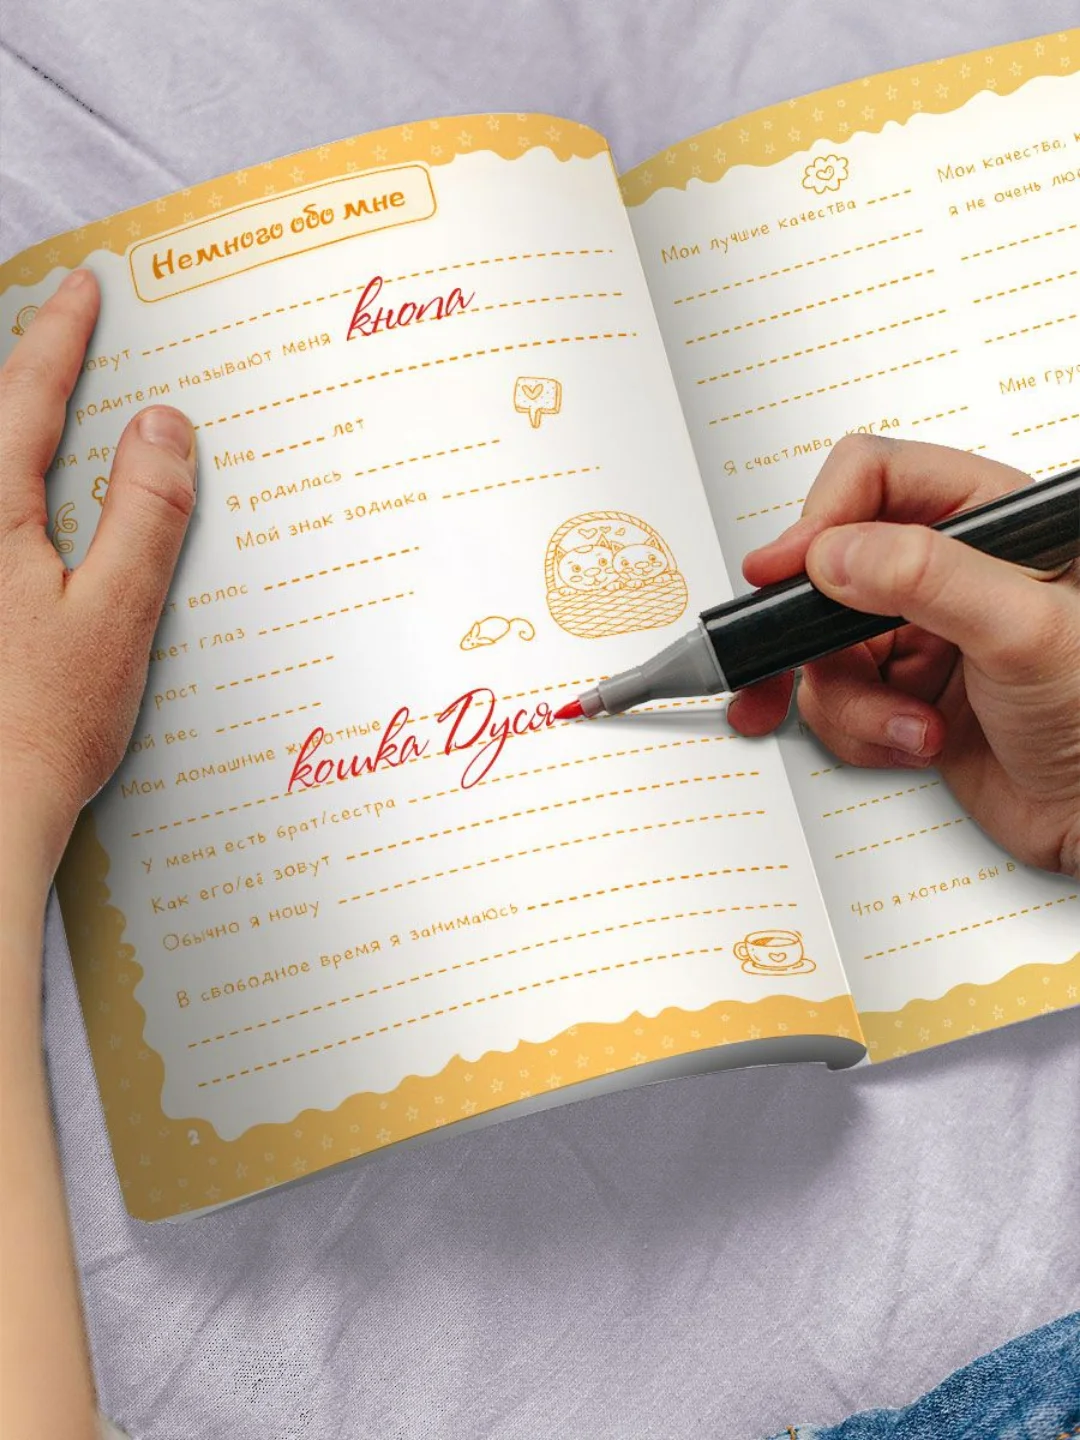 Немного обо мне
овут
родители называют меня кнопа
ля
Мне лет
Я родилась
Мой знак зодиака
волос
вет глаз
рост
ой вес
Мои домашние животные кошка Дуся
У меня есть брат/сестра
Как его/её зовут
Обычно я ношу
В свободное время я занимаюсь
2
Мои лучшие качества
Я счастлива, когда
Мои качества,
я не очень
Мне
Что я хотела бы в